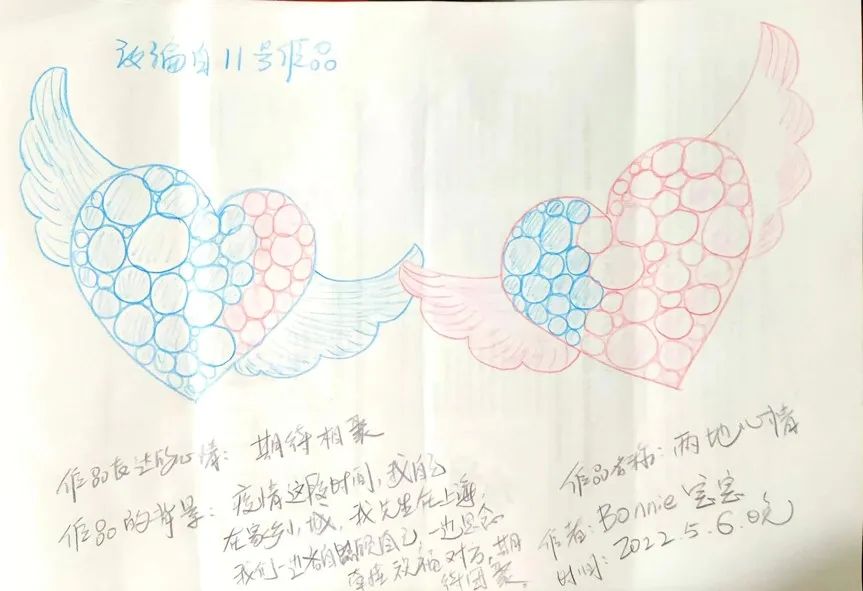 改编自11号作品
作品表达的心情：期待相聚
作品的背景：疫情这段时间，我自己
在家乡小城，我先生在上海，
我们一边各自照顾自己，一边思念
牵挂祝福对方，期
待团聚。
作品名称：两地心情
作者：Bonnie宝宝
时间：2022.5.6.晚